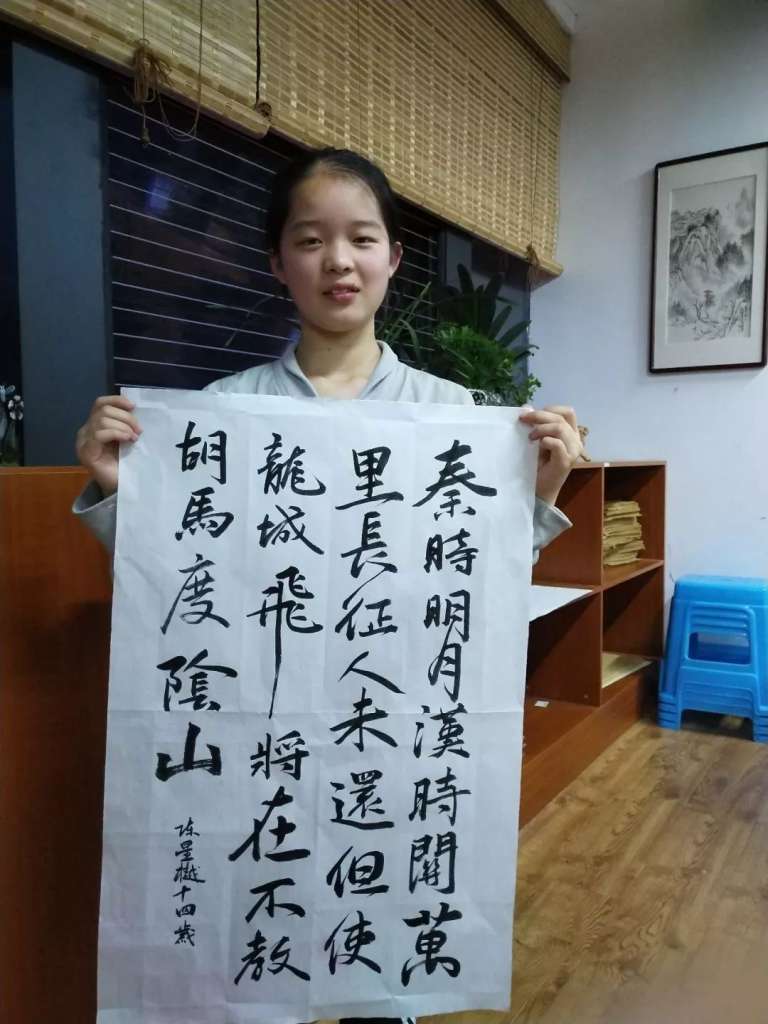 秦時明月漢時關萬
里長征人未還但使
龍城飛將在不教
胡馬度陰山
陈星樾十四歲